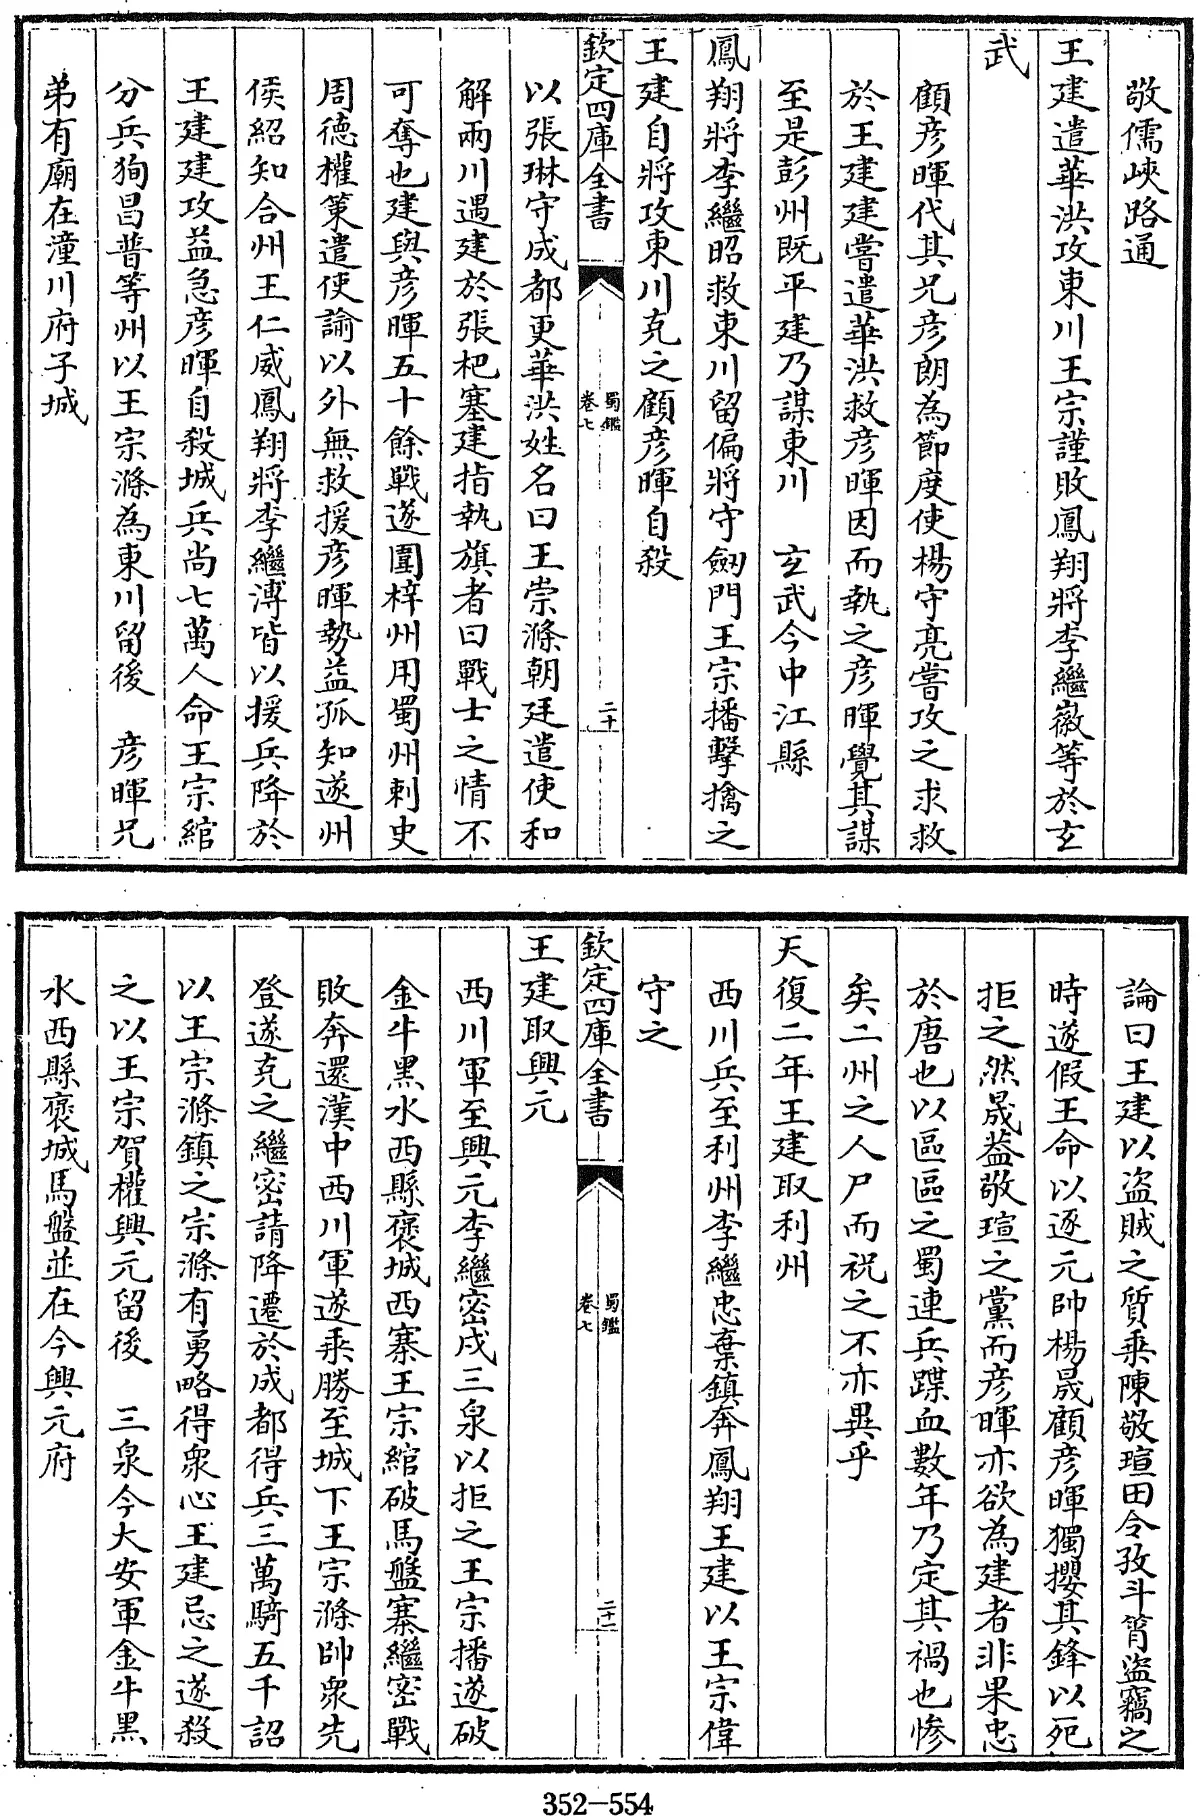 敬儒峽路通
王建遣華洪攻東川王宗謹敗鳳翔將李繼徽等於玄
武
顧彦暉代其兄彦朗為節度使楊守亮嘗攻之求救
於王建建嘗遣華洪救彦暉因而執之彦暉覺其謀
至是彭州既平建乃謀東川　玄武今中江縣
鳳翔將李繼昭救東川留偏將守劒門王宗播擊擒之
王建自將攻東川克之顧彦暉自殺
欽定四庫全書
蜀鑑
卷七
二十
以張琳守成都更華洪姓名曰王崇滌朝廷遣使和
解兩川遇建於張杷塞建指執旗者曰戰士之情不
可奪也建與彦暉五十餘戰遂圍梓州用蜀州刺史
周德權策遣使諭以外無救援彦暉勢益孤知遂州
侯紹知合州王仁威鳳翔將李繼溥皆以援兵降於
王建建攻益急彦暉自殺城兵尚七萬人命王宗綰
分兵狥昌普等州以王宗滌為東川留後　彦暉兄
弟有廟在潼川府子城
論曰王建以盜賊之質乗陳敬瑄田令孜斗筲盜竊之
時遂假王命以逐元帥楊晟顧彦暉獨攖其鋒以死
拒之然晟葢敬瑄之黨而彦暉亦欲為建者非果忠
於唐也以區區之蜀連兵蹀血數年乃定其禍也慘
矣二州之人尸而祝之不亦異乎
天復二年王建取利州
西川兵至利州李繼忠棄鎮奔鳳翔王建以王宗偉
守之
欽定四庫全書
蜀鑑
卷七
二十一
王建取興元
西川軍至興元李繼密戍三泉以拒之王宗播遂破
金牛黑水西縣褒城西寨王宗綰破馬盤寨繼密戰
敗奔還漢中西川軍遂乘勝至城下王宗滌帥衆先
登遂克之繼密請降遷於成都得兵三萬騎五千詔
以王宗滌鎮之宗滌有勇略得衆心王建忌之遂殺
之以王宗賀權興元留後　三泉今大安軍金牛黑
水西縣褒城馬盤並在今興元府
352—554